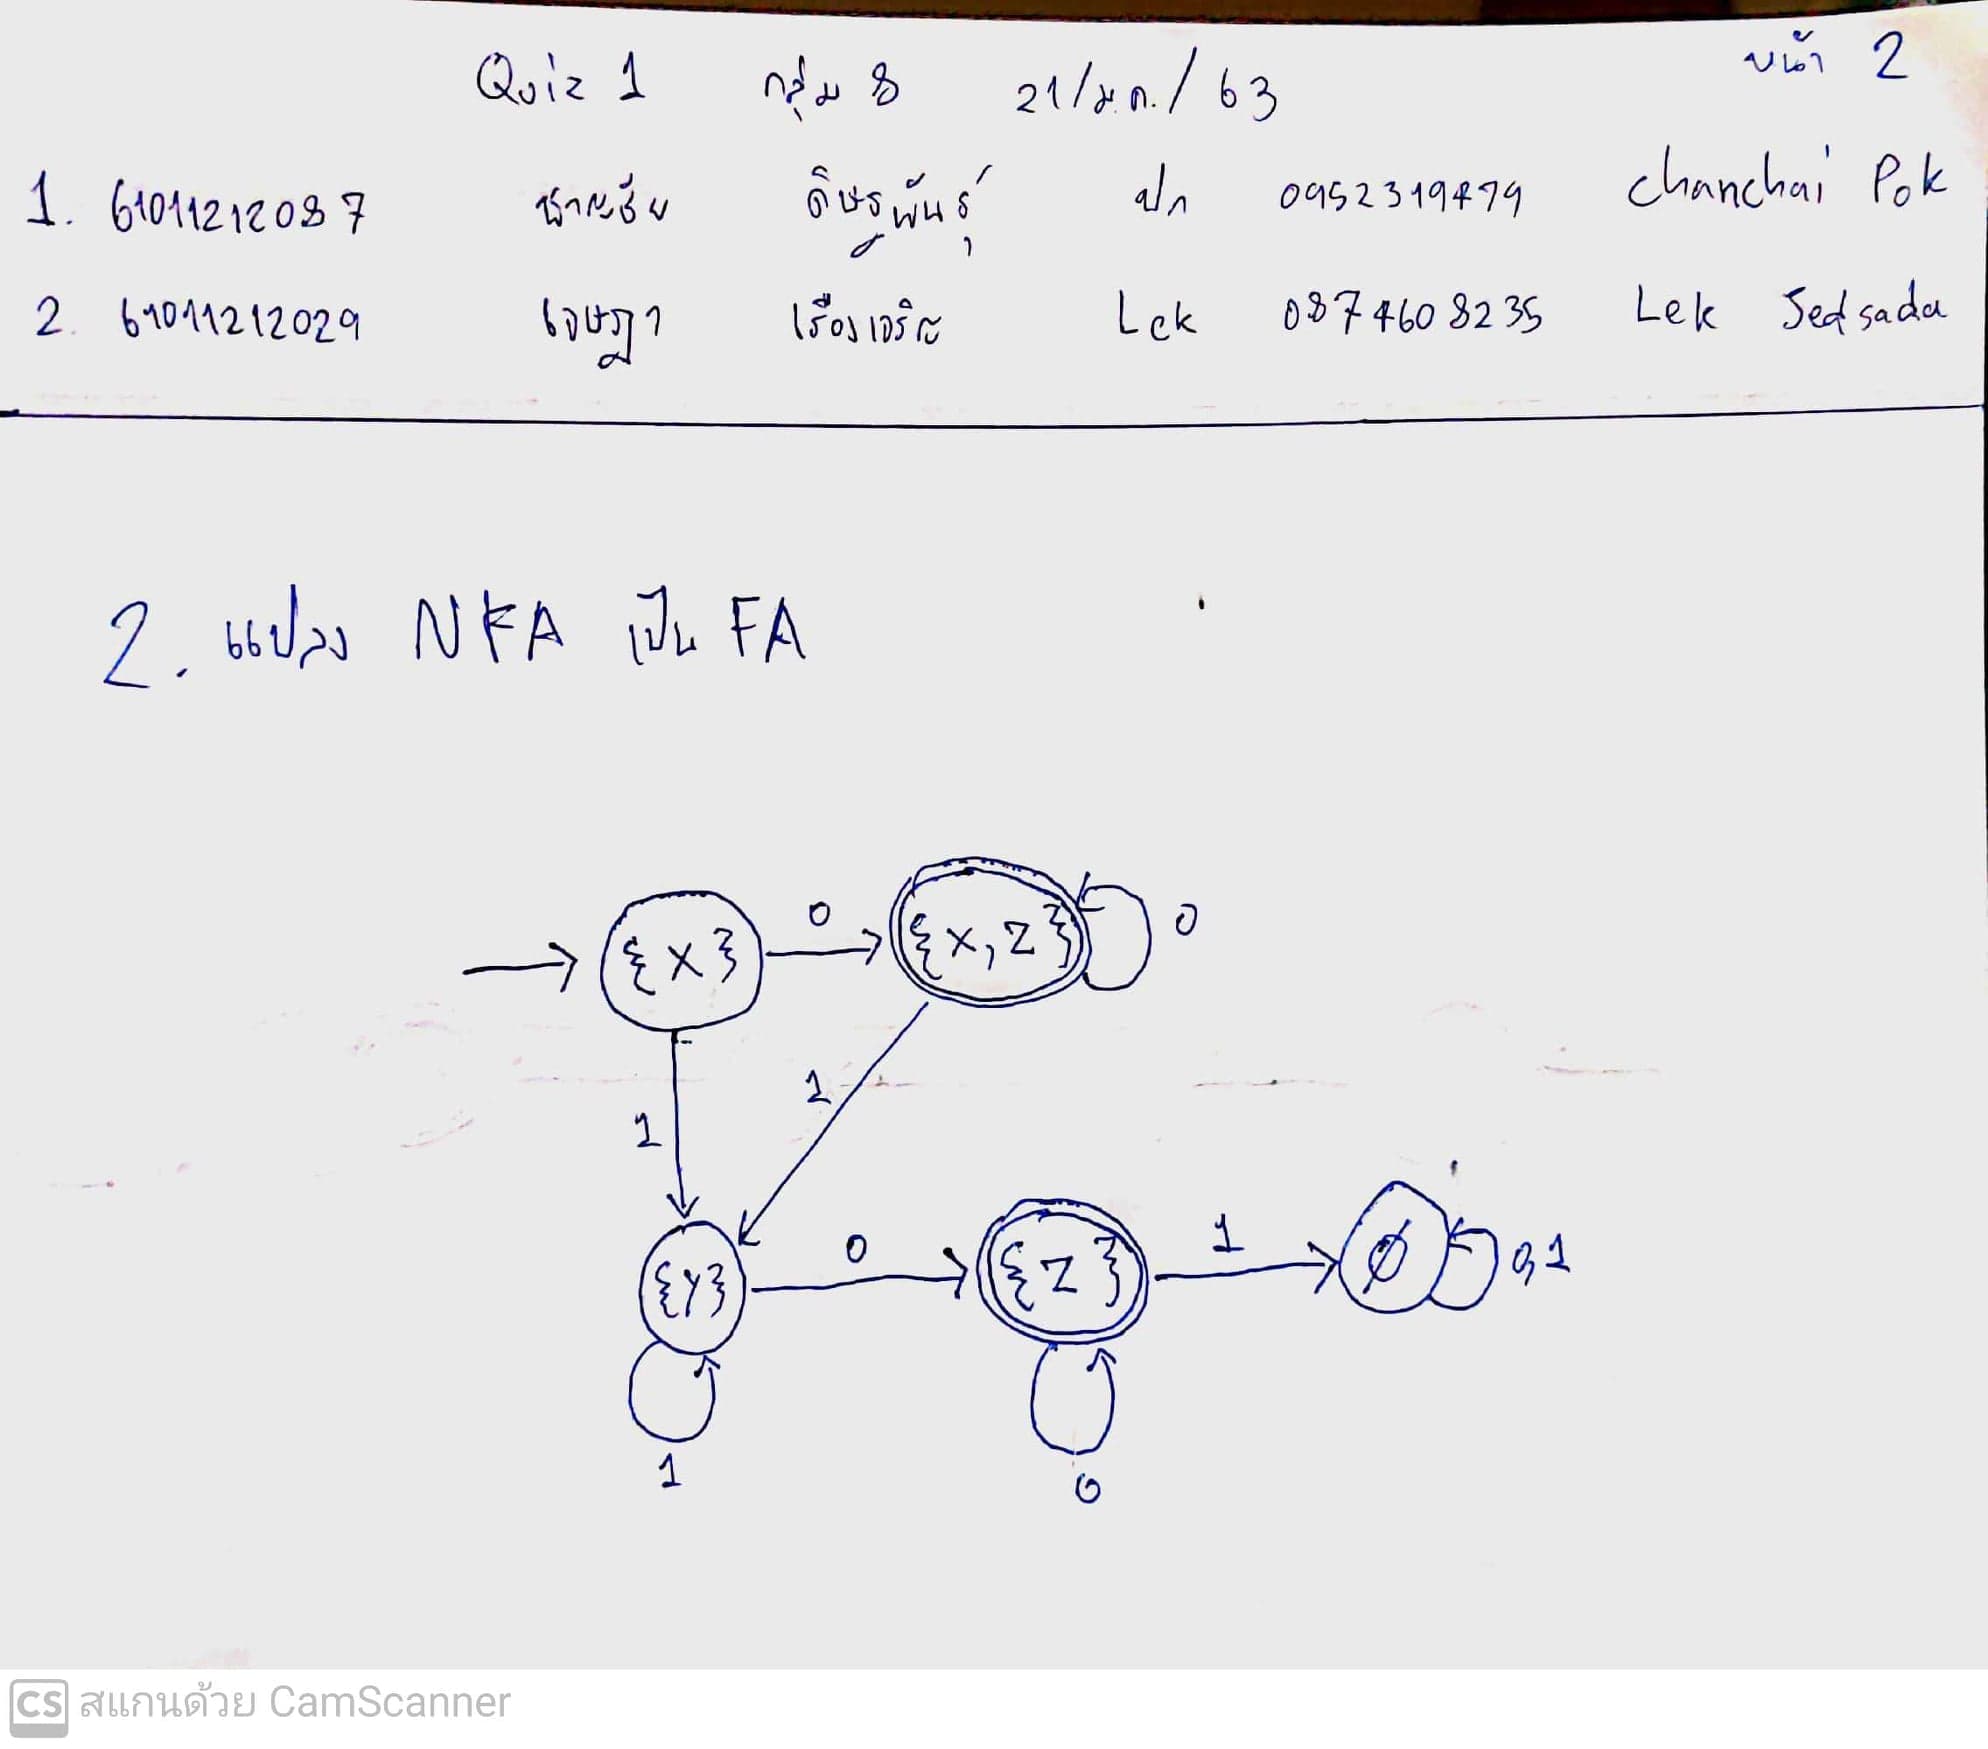 Quiz 1 กลุ่ม 8 21/ม.ค./63 หน้า 2
1. 61011212087 ชาญชัย ดิษฐพันธุ์ ปก 0952319479 Chanchai Pok
2. 61011212029 เจษฎา เรืองเจริญ Lek 0874608235 Lek Jedsada
2. แปลง NFA เป็น FA
{x} 0 {x,z} 0
1 1
{y} 0 {z} 1 ∅ 0,1
1 0
CS สแกนด้วย CamScanner